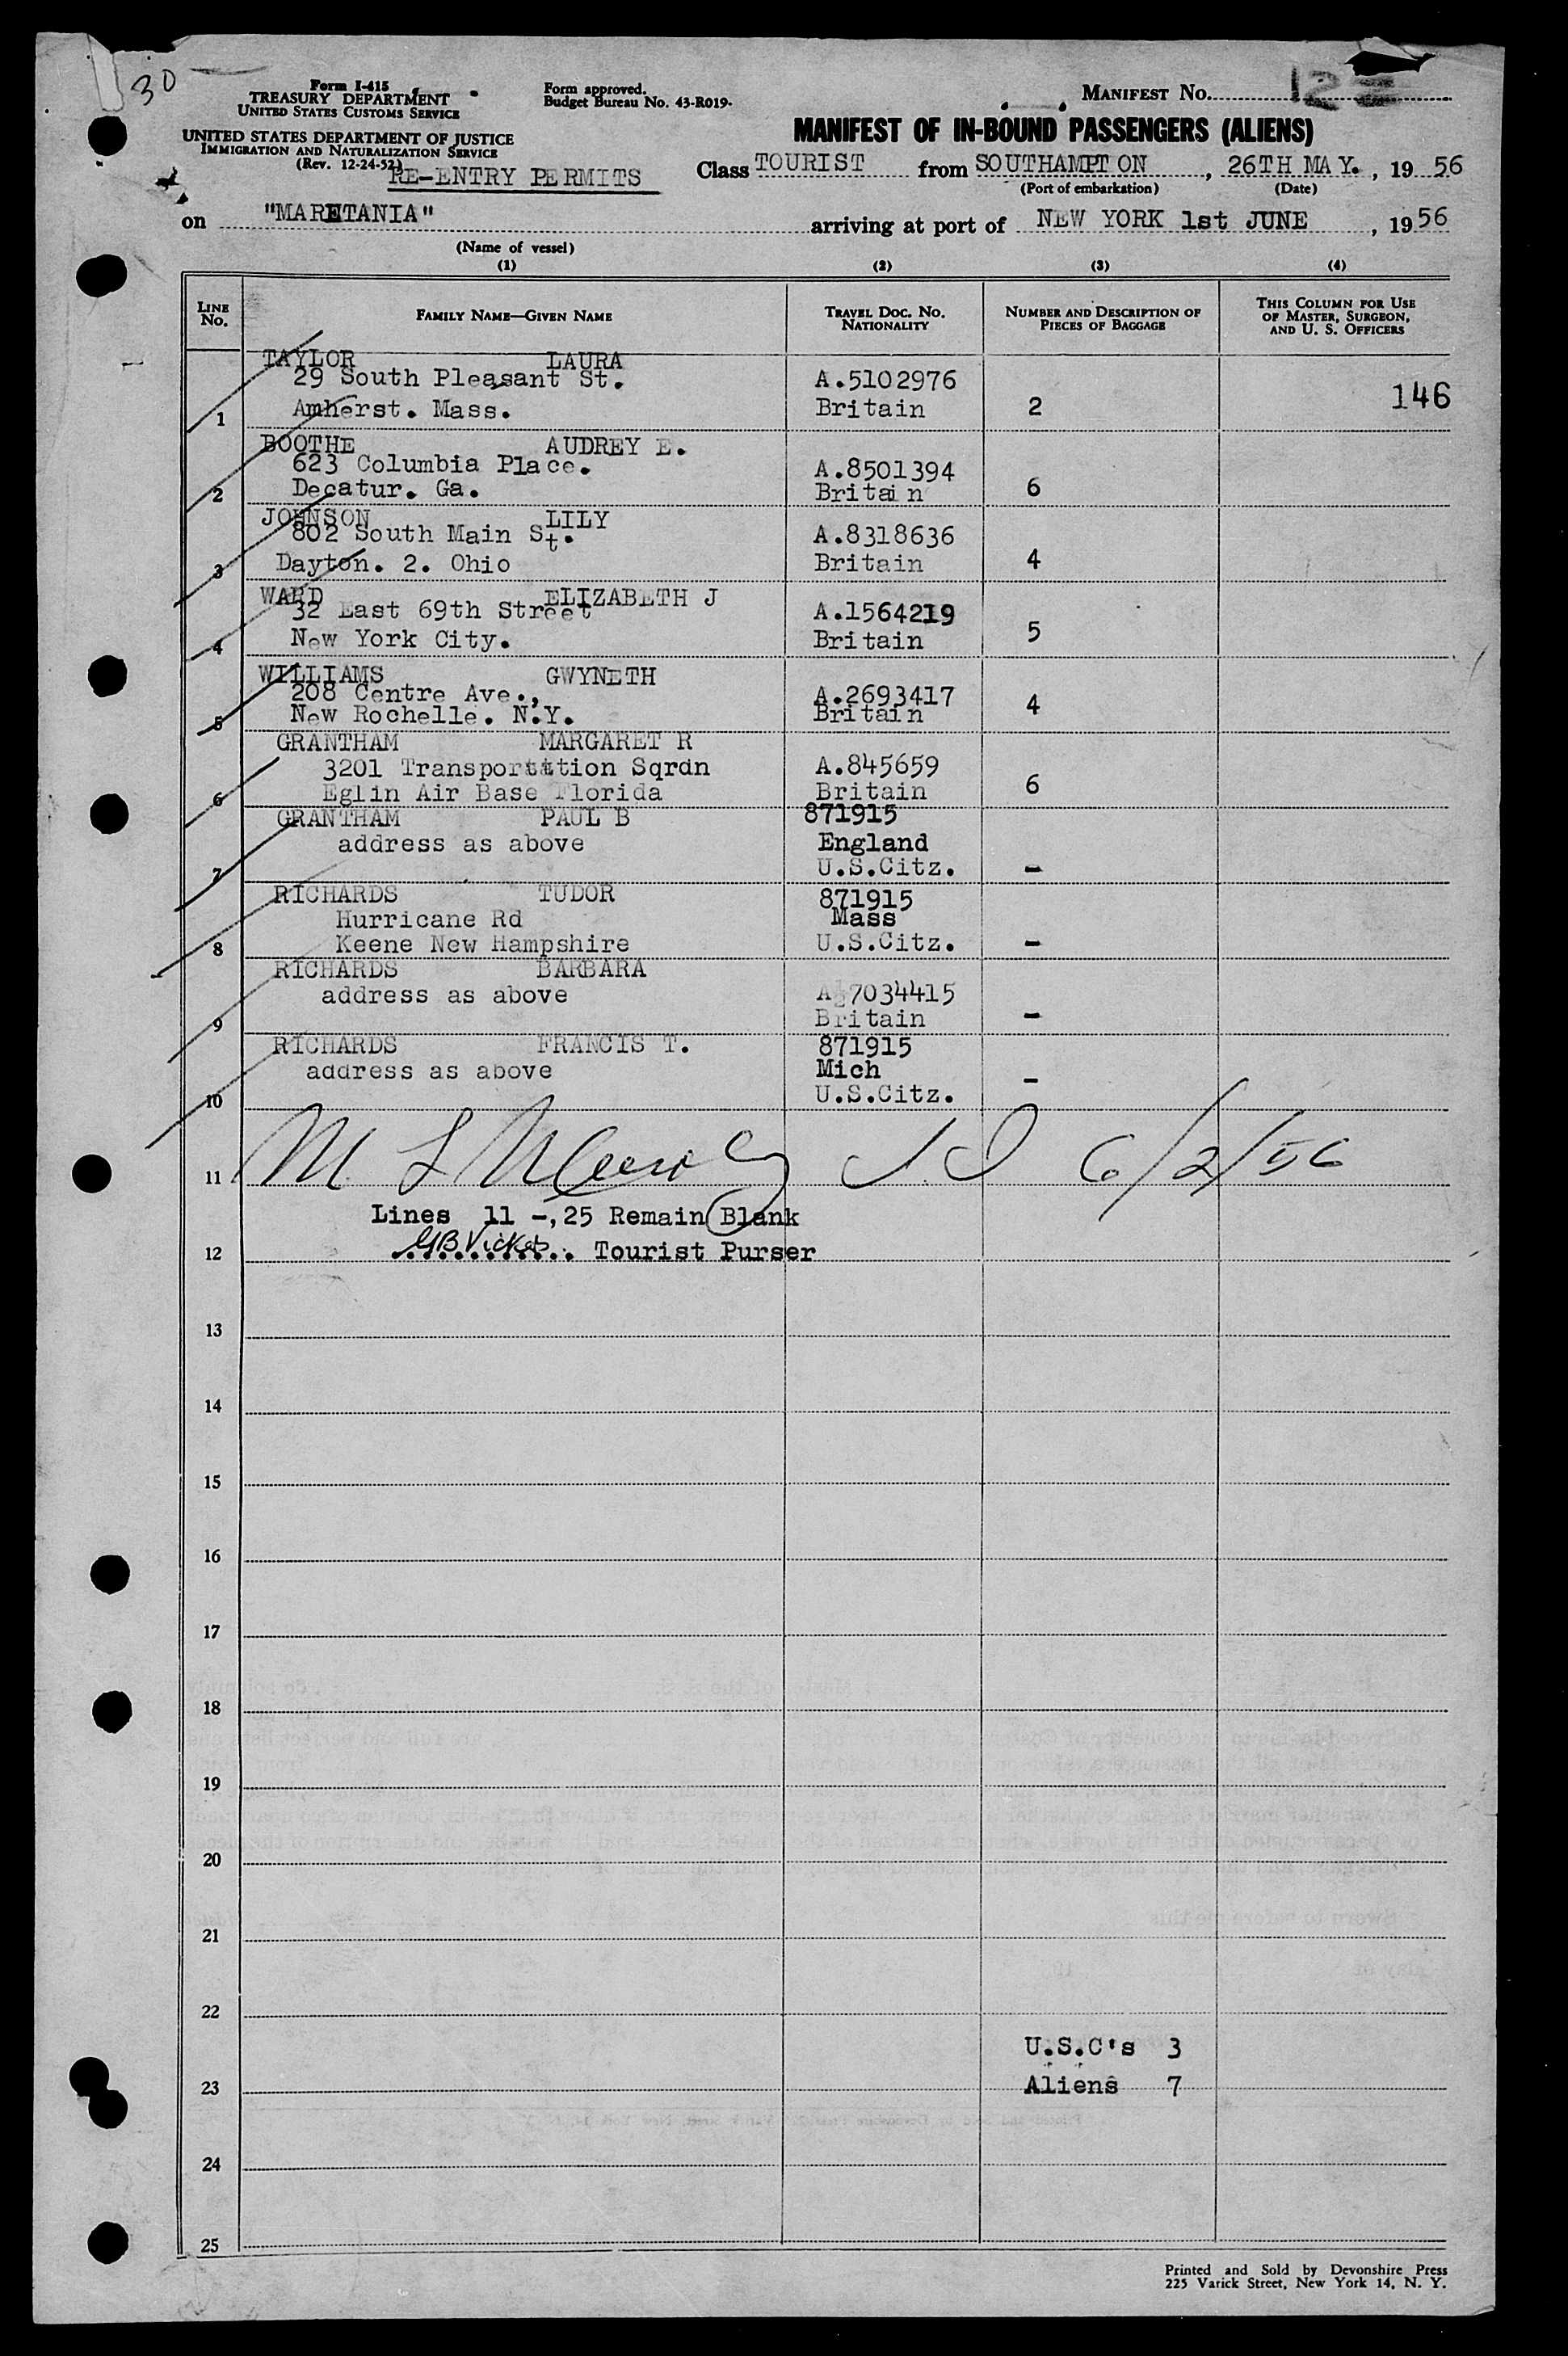 30
Form I-415
TREASURY DEPARTMENT
UNITED STATES CUSTOMS SERVICE
UNITED STATES DEPARTMENT OF JUSTICE
IMMIGRATION AND NATURALIZATION SERVICE
(Rev. 12-24-52)
Form approved.
Budget Bureau No. 43-R019-
MANIFEST No. 12
MANIFEST OF IN-BOUND PASSENGERS (ALIENS)
RE-ENTRY PERMITS
Class TOURIST from SOUTHAMPTON, 26TH MAY., 1956
(Port of embarkation) (Date)
on "MARETANIA" arriving at port of NEW YORK 1st JUNE, 1956
(Name of vessel)
(1) (2) (3) (4)
LINE No. FAMILY NAME—GIVEN NAME TRAVEL DOC. NO. NATIONALITY NUMBER AND DESCRIPTION OF PIECES OF BAGGAGE THIS COLUMN FOR USE OF MASTER, SURGEON, AND U. S. OFFICERS
TAYLOR LAURA
29 South Pleasant St. A.5102976
1 Amherst. Mass. Britain 2 146
BOOTHE AUDREY E.
623 Columbia Place. A.8501394
2 Decatur. Ga. Britain 6
JOHNSON LILY
802 South Main St. A.8318636
3 Dayton. 2. Ohio Britain 4
WARD ELIZABETH J
32 East 69th Street A.1564219
4 New York City. Britain 5
WILLIAMS GWYNETH
208 Centre Ave., A.2693417
5 New Rochelle. N.Y. Britain 4
GRANTHAM MARGARET R
3201 Transportation Sqrdn A.845659
6 Eglin Air Base Florida Britain 6
GRANTHAM PAUL B 871915
address as above England
7 U.S.Citz. -
RICHARDS TUDOR 871915
Hurricane Rd Mass
8 Keene New Hampshire U.S.Citz. -
RICHARDS BARBARA
address as above A 7034415
9 Britain -
RICHARDS FRANCIS T. 871915
address as above Mich
10 U.S.Citz. -
11 M L 6/2/56
Lines 11 -,25 Remain Blank
12 ............ Tourist Purser
13
14
15
16
17
18
19
20
21
22
U.S.C's 3
23 Aliens 7
24
25
Printed and Sold by Devonshire Press
225 Varick Street, New York 14, N. Y.